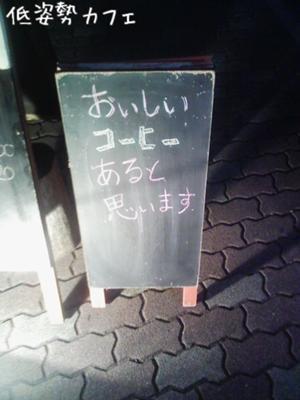 低姿勢カフェ
おいしい
コーヒー
あると
思います